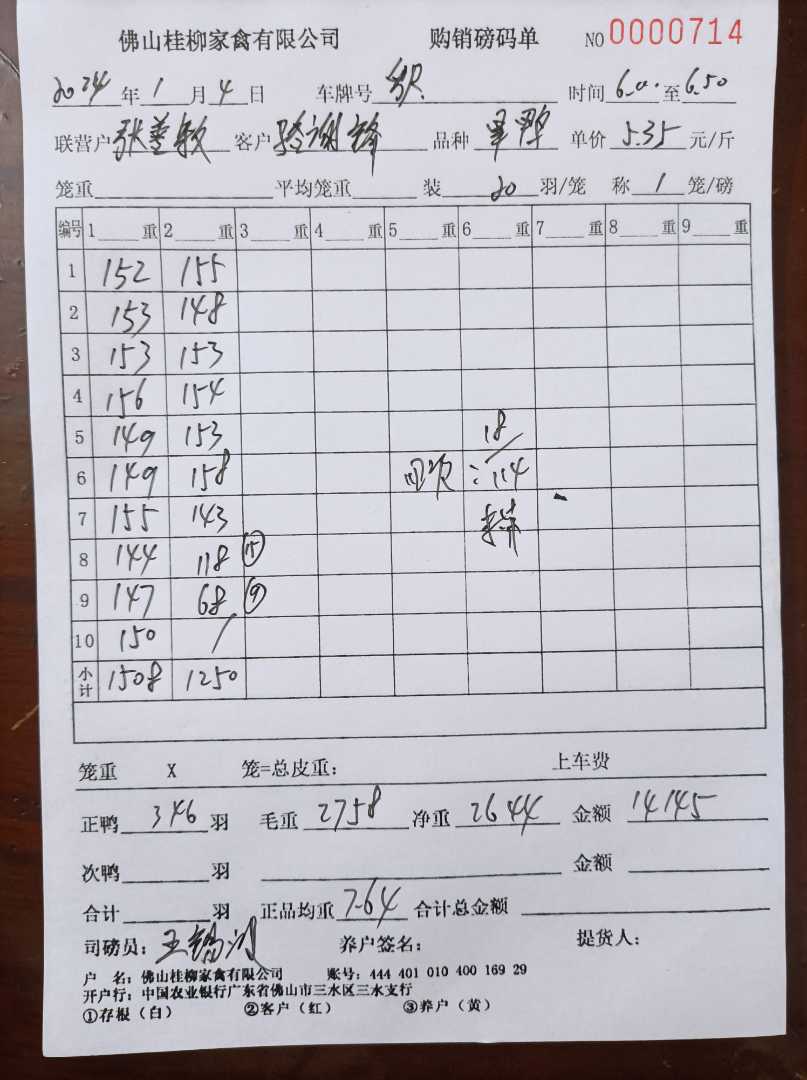 佛山桂柳家禽有限公司 购销磅码单 NO 0000714
2024年1月4日 车牌号 时间6.0.至6.50
联营户张莲敏 客户 谢锋 品种 单价5.35元/斤
笼重 平均笼重 装20羽/笼 称1笼/磅
编号 1 重 2 重 3 重 4 重 5 重 6 重 7 重 8 重 9 重
1 152 155
2 153 148
3 153 153
4 156 154
5 149 153 18
6 149 158 回收:114
7 155 143
8 144 118 ⑮
9 147 68 ⑨
10 150 /
小计 1508 1250
笼重 X 笼=总皮重: 上车费
正鸭346羽 毛重2758 净重2644 金额14145
次鸭 羽 金额
合计 羽 正品均重7.64 合计总金额
司磅员:王 养户签名: 提货人:
户 名:佛山桂柳家禽有限公司 账号:444 401 010 400 169 29
开户行:中国农业银行广东省佛山市三水区三水支行
①存根(白) ②客户(红) ③养户(黄)